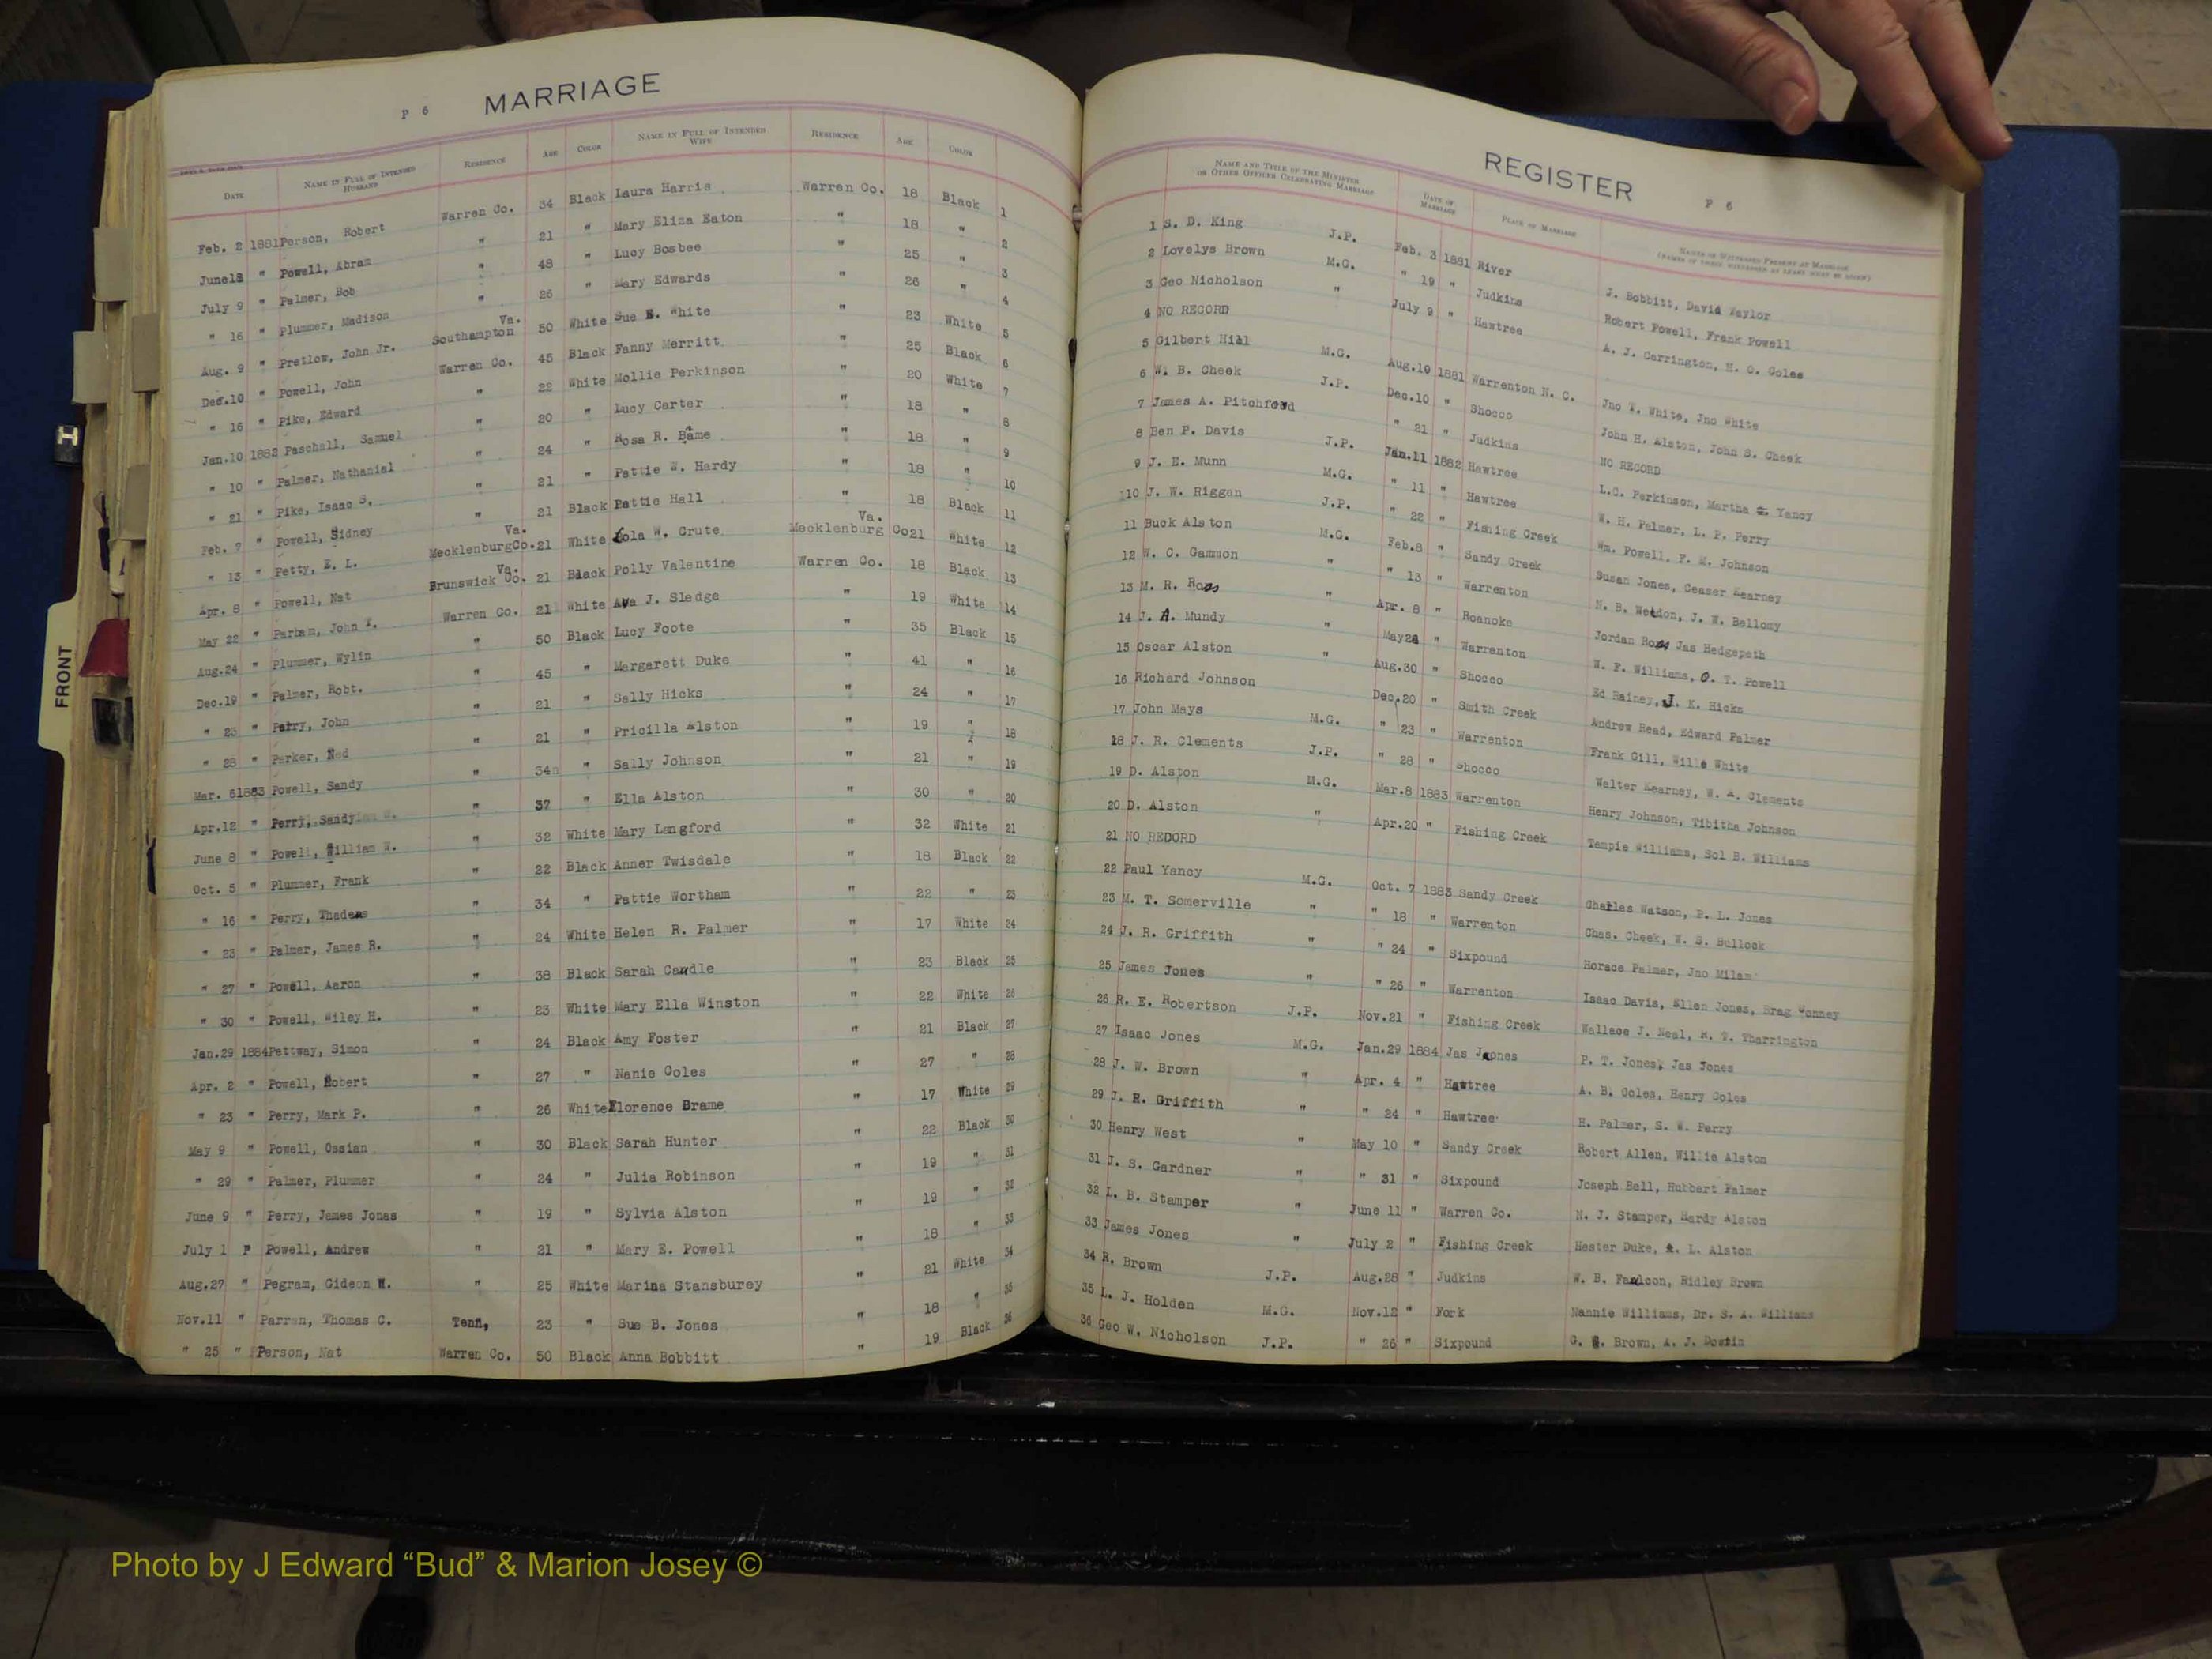 P 6 MARRIAGE
DATE NAME IN FULL OF INTENDED HUSBAND RESIDENCE AGE COLOR NAME IN FULL OF INTENDED WIFE RESIDENCE AGE COLOR
Feb. 2 1881 Person, Robert Warren Co. 34 Black Laura Harris Warren Co. 18 Black 1
June18 " Powell, Abram " 21 " Mary Eliza Eaton " 18 " 2
July 9 " Palmer, Bob " 48 " Lucy Bosbee " 25 " 3
" 16 " Plummer, Madison " 26 " Mary Edwards " 26 " 4
Aug. 9 " Pretlow, John Jr. Va. Southampton 50 White Sue E. White " 23 White 5
Dec.10 " Powell, John Warren Co. 45 Black Fanny Merritt " 25 Black 6
" 16 " Pike, Edward " 22 White Mollie Perkinson " 20 White 7
Jan.10 1882 Paschall, Samuel " 20 " Lucy Carter " 18 " 8
" 10 " Palmer, Nathanial " 24 " Rosa R. Bame " 18 " 9
" 21 " Pike, Isaac S. " 21 " Pattie W. Hardy " 18 " 10
Feb. 7 " Powell, Sidney " 21 Black Pattie Hall " 18 Black 11
" 13 " Petty, E. L. Va. MecklenburgCo. 21 White Lola W. Crute Va. Mecklenburg Co 21 White 12
Apr. 8 " Powell, Nat Va. Brunswick Co. 21 Black Polly Valentine Warren Co. 18 Black 13
May 22 " Parham, John T. Warren Co. 21 White Ava J. Sledge " 19 White 14
Aug.24 " Plummer, Wylin " 50 Black Lucy Foote " 35 Black 15
Dec.19 " Palmer, Robt. " 45 " Margarett Duke " 41 " 16
" 23 " Perry, John " 21 " Sally Hicks " 24 " 17
" 28 " Parker, Ned " 21 " Pricilla Alston " 19 " 18
Mar. 6 1883 Powell, Sandy " 34 " Sally Johnson " 21 " 19
Apr.12 " Perry, Sandy " 37 " Ella Alston " 30 " 20
June 8 " Powell, William W. " 32 White Mary Langford " 32 White 21
Oct. 5 " Plummer, Frank " 22 Black Anner Twisdale " 18 Black 22
" 16 " Perry, Thadeas " 34 " Pattie Wortham " 22 " 23
" 23 " Palmer, James R. " 24 White Helen R. Palmer " 17 White 24
" 27 " Powell, Aaron " 38 Black Sarah Caudle " 23 Black 25
" 30 " Powell, Wiley H. " 23 White Mary Ella Winston " 22 White 26
Jan.29 1884 Pettway, Simon " 24 Black Amy Foster " 21 Black 27
Apr. 2 " Powell, Robert " 27 " Nanie Coles " 27 " 28
" 23 " Perry, Mark P. " 26 White Florence Brame " 17 White 29
May 9 " Powell, Ossian " 30 Black Sarah Hunter " 22 Black 30
" 29 " Palmer, Plummer " 24 " Julia Robinson " 19 " 31
June 9 " Perry, James Jonas " 19 " Sylvia Alston " 19 " 32
July 1 P Powell, Andrew " 21 " Mary E. Powell " 18 " 33
Aug.27 " Pegram, Gideon W. " 25 White Marina Stansburey " 21 White 34
Nov.11 " Parren, Thomas C. Tenn, 23 " Sue B. Jones " 18 " 35
" 25 " Person, Nat Warren Co. 50 Black Anna Bobbitt " 19 Black 36
REGISTER P 6
NAME AND TITLE OF THE MINISTER OR OTHER OFFICER CELEBRATING MARRIAGE DATE OF MARRIAGE PLACE OF MARRIAGE NAMES OF WITNESSES PRESENT AT MARRIAGE (NAMES OF THREE WITNESSES AT LEAST MUST BE GIVEN)
1 S. D. King J.P. Feb. 3 1881 River J. Bobbitt, David Waylor
2 Lovelys Brown M.G. " 19 " Judkins Robert Powell, Frank Powell
3 Geo Nicholson " July 9 " Hawtree A. J. Carrington, H. O. Coles
4 NO RECORD
5 Gilbert Hill M.G. Aug.19 1881 Warrenton N. C. Jno T. White, Jno White
6 W. B. Cheek J.P. Dec.10 " Shocco John H. Alston, John S. Cheek
7 James A. Pitchford " 21 " Judkins NO RECORD
8 Ben P. Davis J.P. Jan.11 1882 Hawtree L.C. Perkinson, Martha G. Yancy
9 J. E. Munn M.G. " 11 " Hawtree W. H. Palmer, L. P. Perry
10 J. W. Riggan J.P. " 22 " Fishing Creek Wm. Powell, F. M. Johnson
11 Buck Alston M.G. Feb.8 " Sandy Creek Susan Jones, Ceazer Kearney
12 W. C. Gammon " " 13 " Warrenton N. B. Weldon, J. W. Bellomy
13 M. R. Ross " Apr. 8 " Roanoke Jordan Ross Jas Hedgepeth
14 J. A. Mundy " May24 " Warrenton W. F. Williams, O. T. Powell
15 Oscar Alston " Aug.30 " Shocco Ed Rainey, J. K. Hicks
16 Richard Johnson Dec.20 " Smith Creek Andrew Read, Edward Palmer
17 John Mays M.G. " 23 " Warrenton Frank Gill, Wille White
18 J. R. Clements J.P. " 28 " Shocco Walter Kearney, W. A. Clements
19 D. Alston M.G. Mar.8 1883 Warrenton Henry Johnson, Tibitha Johnson
20 D. Alston " Apr.20 " Fishing Creek Tempie Williams, Sol B. Williams
21 NO REDORD
22 Paul Yancy M.G. Oct. 7 1883 Sandy Creek Charles Watson, P. L. Jones
23 M. T. Somerville " " 18 " Warrenton Chas. Cheek, W. S. Bullock
24 J. R. Griffith " " 24 " Sixpound Horace Palmer, Jno Milam
25 James Jones " " 26 " Warrenton Isaac Davis, Ellen Jones, Brag
26 R. E. Robertson J.P. Nov.21 " Fishing Creek Wallace J. Neal, R. T. Tharrington
27 Isaac Jones M.G. Jan.29 1884 Jas Jones P. T. Jones, Jas Jones
28 J. W. Brown " Apr. 4 " Hawtree A. B. Coles, Henry Coles
29 J. R. Griffith " " 24 " Hawtree H. Palmer, S. W. Perry
30 Henry West " May 10 " Sandy Creek Robert Allen, Willie Alston
31 J. S. Gardner " " 31 " Sixpound Joseph Bell, Hubbert Palmer
32 L. B. Stamper " June 11 " Warren Co. N. J. Stamper, Hardy Alston
33 James Jones " July 2 " Fishing Creek Hester Duke, A. L. Alston
34 R. Brown J.P. Aug.28 " Judkins W. B. Faulcon, Ridley Brown
35 L. J. Holden M.G. Nov.12 " Fork Nannie Williams, Dr. S. A. Williams
36 Geo W. Nicholson J.P. " 26 " Sixpound G. Brown, A. J.
FRONT
Photo by J Edward “Bud” & Marion Josey ©